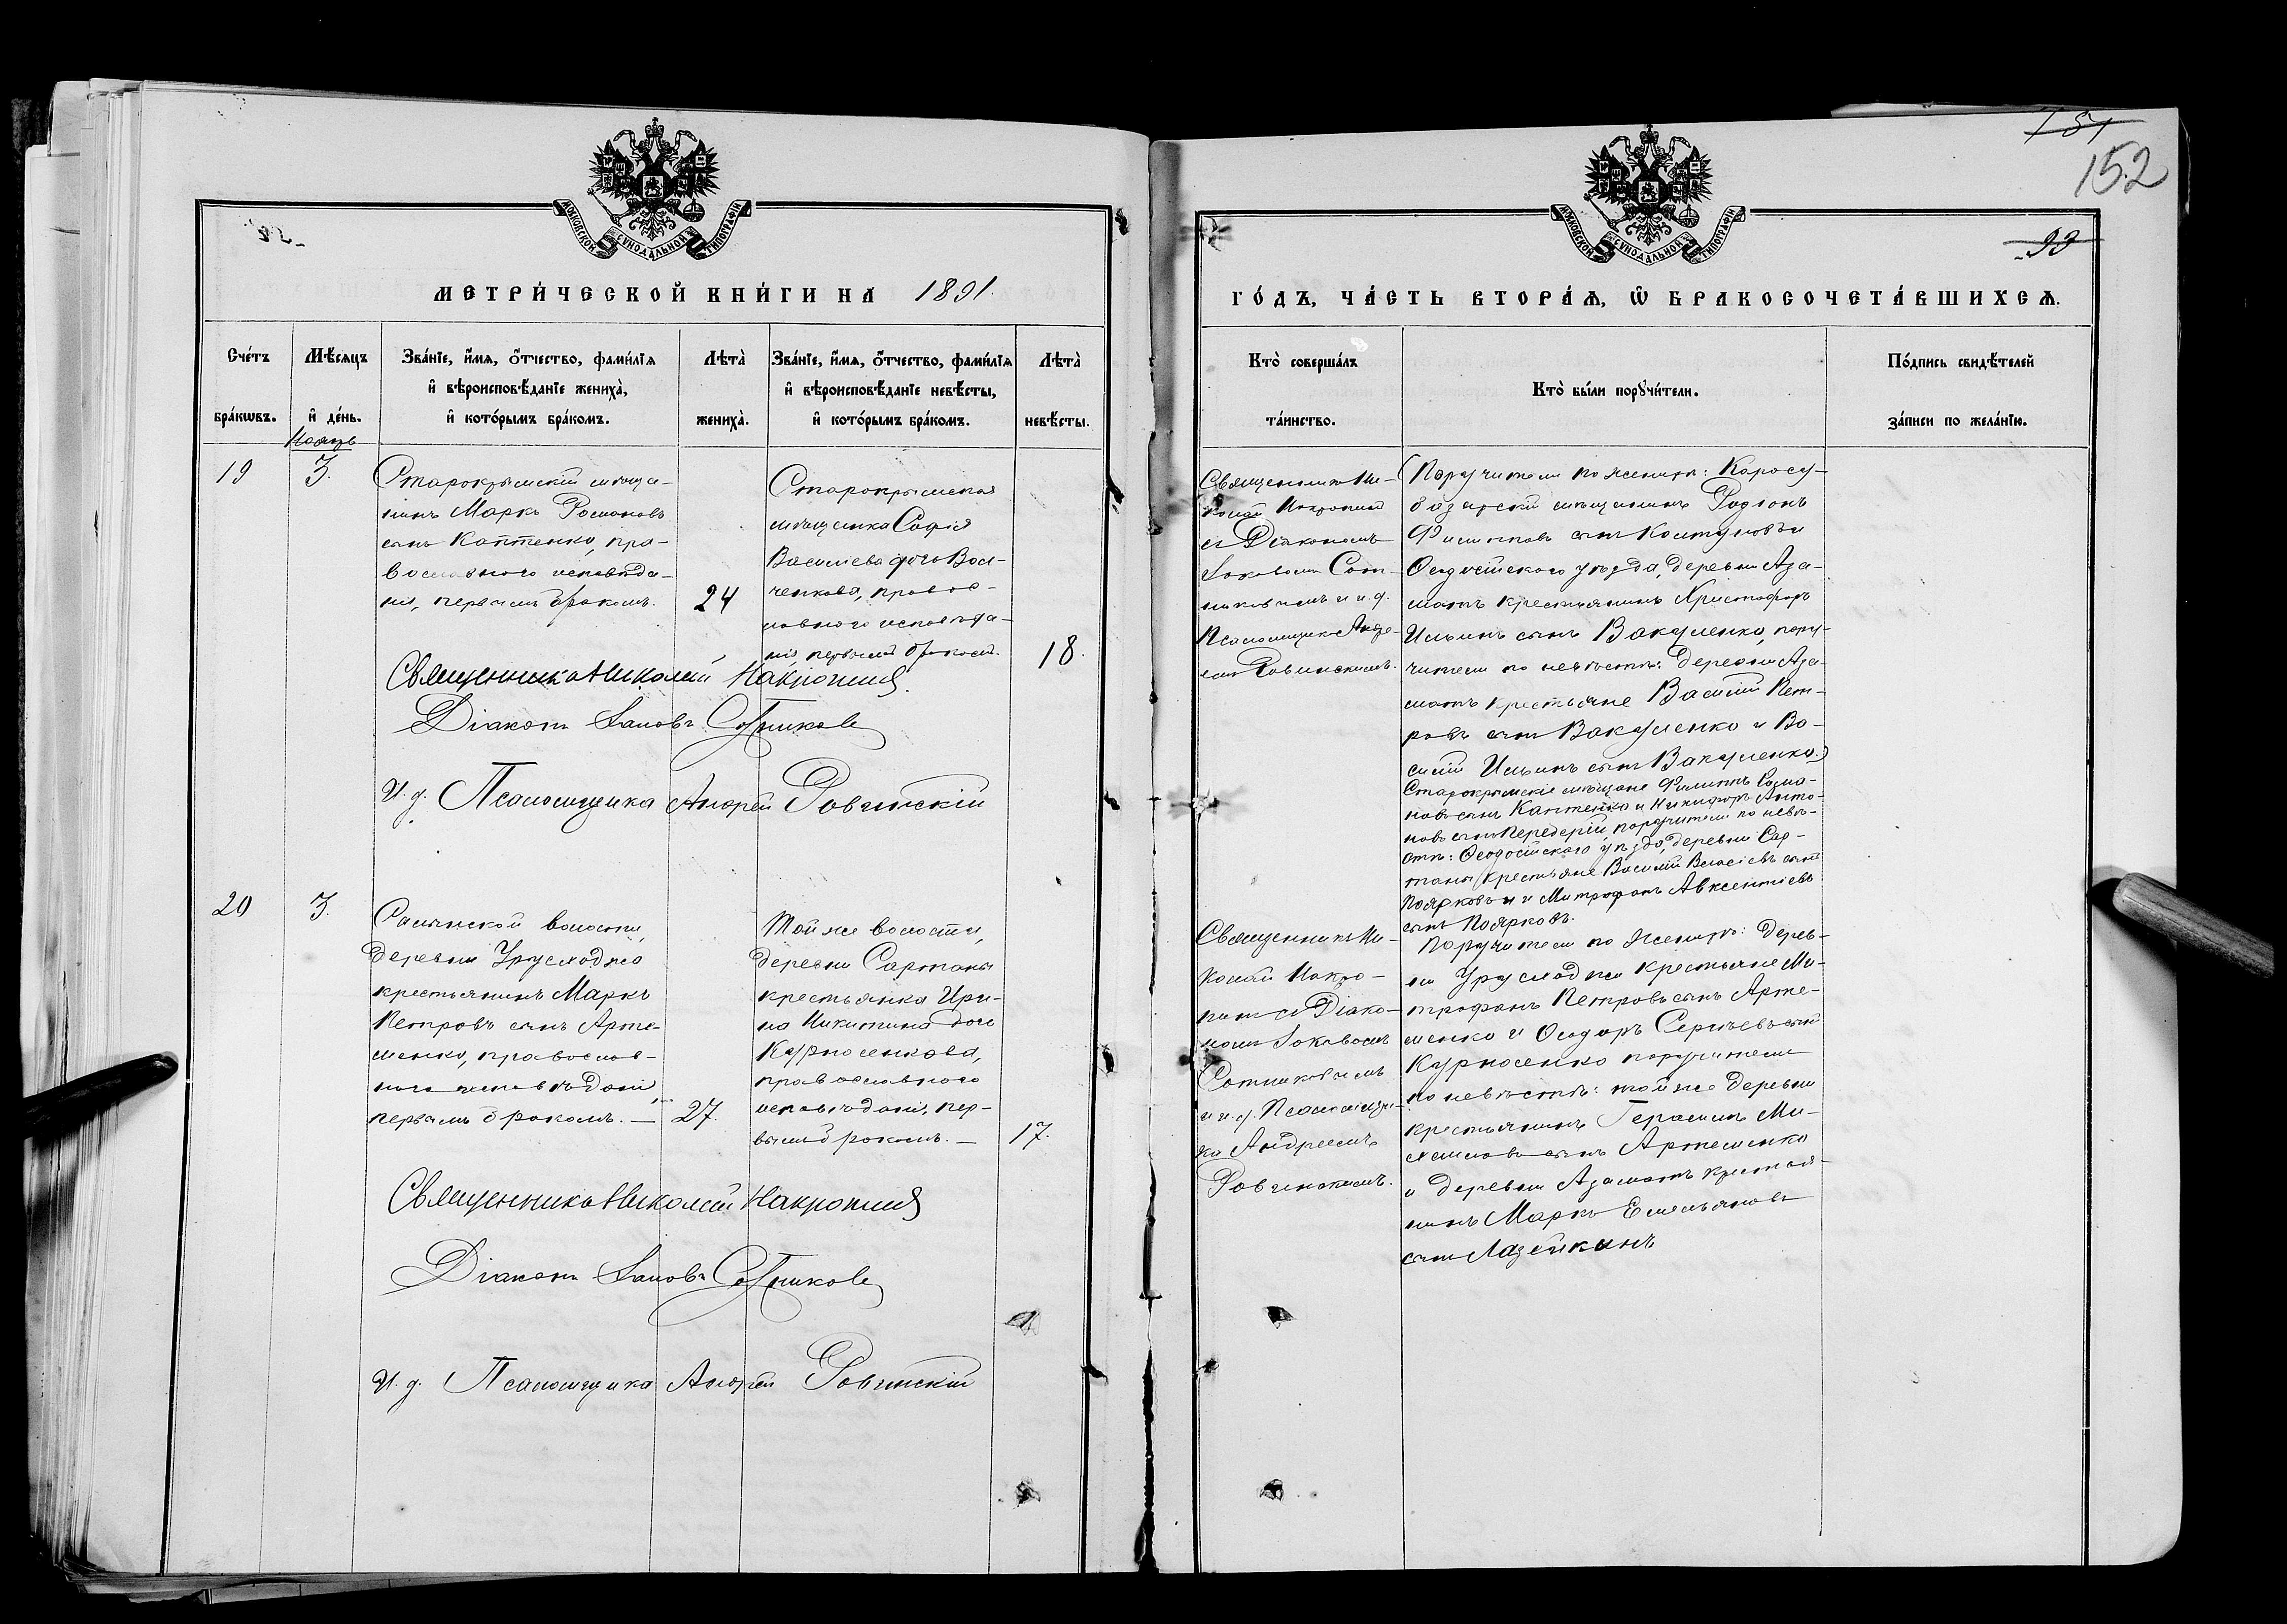 151
152
99
МОСКОВСКОЙ СѴНОДАЛЬНОЙ ТИПОГРАФІИ
МЕТРИ́ЧЕСКОЙ КНИ́ГИ НА 1891.
Сче́тъ бра́кѡвъ.
Мѣ́сяцъ и҆ де́нь.
Зва́нїе, и҆́мя, ѻ҆́тчество, фами́лїя
и҆ вѣроисповѣ́данїе жениха̀,
и҆ кото́рымъ бра́комъ.
Лѣта̀ жениха̀.
Зва́нїе, и҆́мя, ѻ҆́тчество, фами́лїя
и҆ вѣроисповѣ́данїе невѣ́сты,
и҆ кото́рымъ бра́комъ.
Лѣта̀ невѣ́сты.
Ноябрь
19
3.
Старокрымскій мѣща-
нинъ Маркъ Романовъ
сынъ Каптенко, пра-
вославного исповѣда-
нія, первымъ бракомъ.
24
Старокрымская
мѣщанка Софія
Василіева дочь Вол-
ченкова, правос-
лавного исповѣда-
нія, первымъ бракомъ.
18.
Священникъ Николай Накропинъ
Діаконъ Іаковъ Сотниковъ
И. д. Псаломщика Андрей Ровинскій
20
3.
Салынской волости,
деревни Урусходжа
крестьянинъ Маркъ
Петровъ сынъ Арте-
менко, православ-
ного исповѣданія,
первымъ бракомъ. —
27.
Той же волости,
деревни Сартаны
крестьянка Ири-
на Никитина дочь
Курносенкова,
православного
исповѣданія, пер-
вымъ бракомъ. —
17.
Священникъ Николай Накропинъ
Діаконъ Іаковъ Сотниковъ
И. д. Псаломщика Андрей Ровинскій
МОСКОВСКОЙ СѴНОДАЛЬНОЙ ТИПОГРАФІИ
ГО́ДЪ, ЧА́СТЬ ВТОРА́Ѧ, Ѽ БРАКОСОЧЕТА́ВШИХСѦ.
Кто̀ соверша́лъ
та́инство.
Кто̀ бы́ли порꙋчи́тели.
По́дпись свидѣ́телей
за́писи по жела́нїю.
Священникъ Ни-
колай Накропинъ
съ Діакономъ
Іаковомъ Сот-
никовымъ и и. д.
Псаломщика Андре-
емъ Ровинскимъ.
(Поручители по женихѣ: Карасу-
базарскій мѣщанинъ Родіонъ
Филиповъ сынъ Колтуновъ и
Ѳеодосійского уѣзда, деревни Аза-
матъ крестьянинъ Христофоръ
Ильинъ сынъ Вакуленко, пору-
чители по невѣстѣ: деревни Аза-
матъ крестьяне Василій Пет-
ровъ сынъ Вакуленко и Ва-
силій Ильинъ сынъ Вакуленко)
Старокрымскіе мѣщане Филиппъ Рома-
новъ сынъ Каптенко и Никифоръ Анто-
новъ сынъ Передерій, поручители по невѣ-
стѣ: Ѳеодосійского уѣзда, деревни Сар-
таны крестьяне Василій Власіевъ сынъ
Поярковъ и Митрофанъ Авксентіевъ
сынъ Поярковъ.
Священникъ Ни-
колай Накро-
пинъ съ Діако-
номъ Іаковомъ
Сотниковымъ
и и. д. Псаломщи-
ка Андреемъ
Ровинскимъ.
Поручители по женихѣ: дерев-
ни Урусходжи крестьяне Ми-
трофанъ Петровъ сынъ Арте-
менко и Ѳеодоръ Сергѣевъ сынъ
Курносенко поручители
по невѣстѣ: той же деревни
крестьянинъ Герасимъ Ми-
хаиловъ сынъ Артеменко
и деревни Азаматъ крестья-
нинъ Маркъ Емельяновъ
сынъ Лазейкинъ